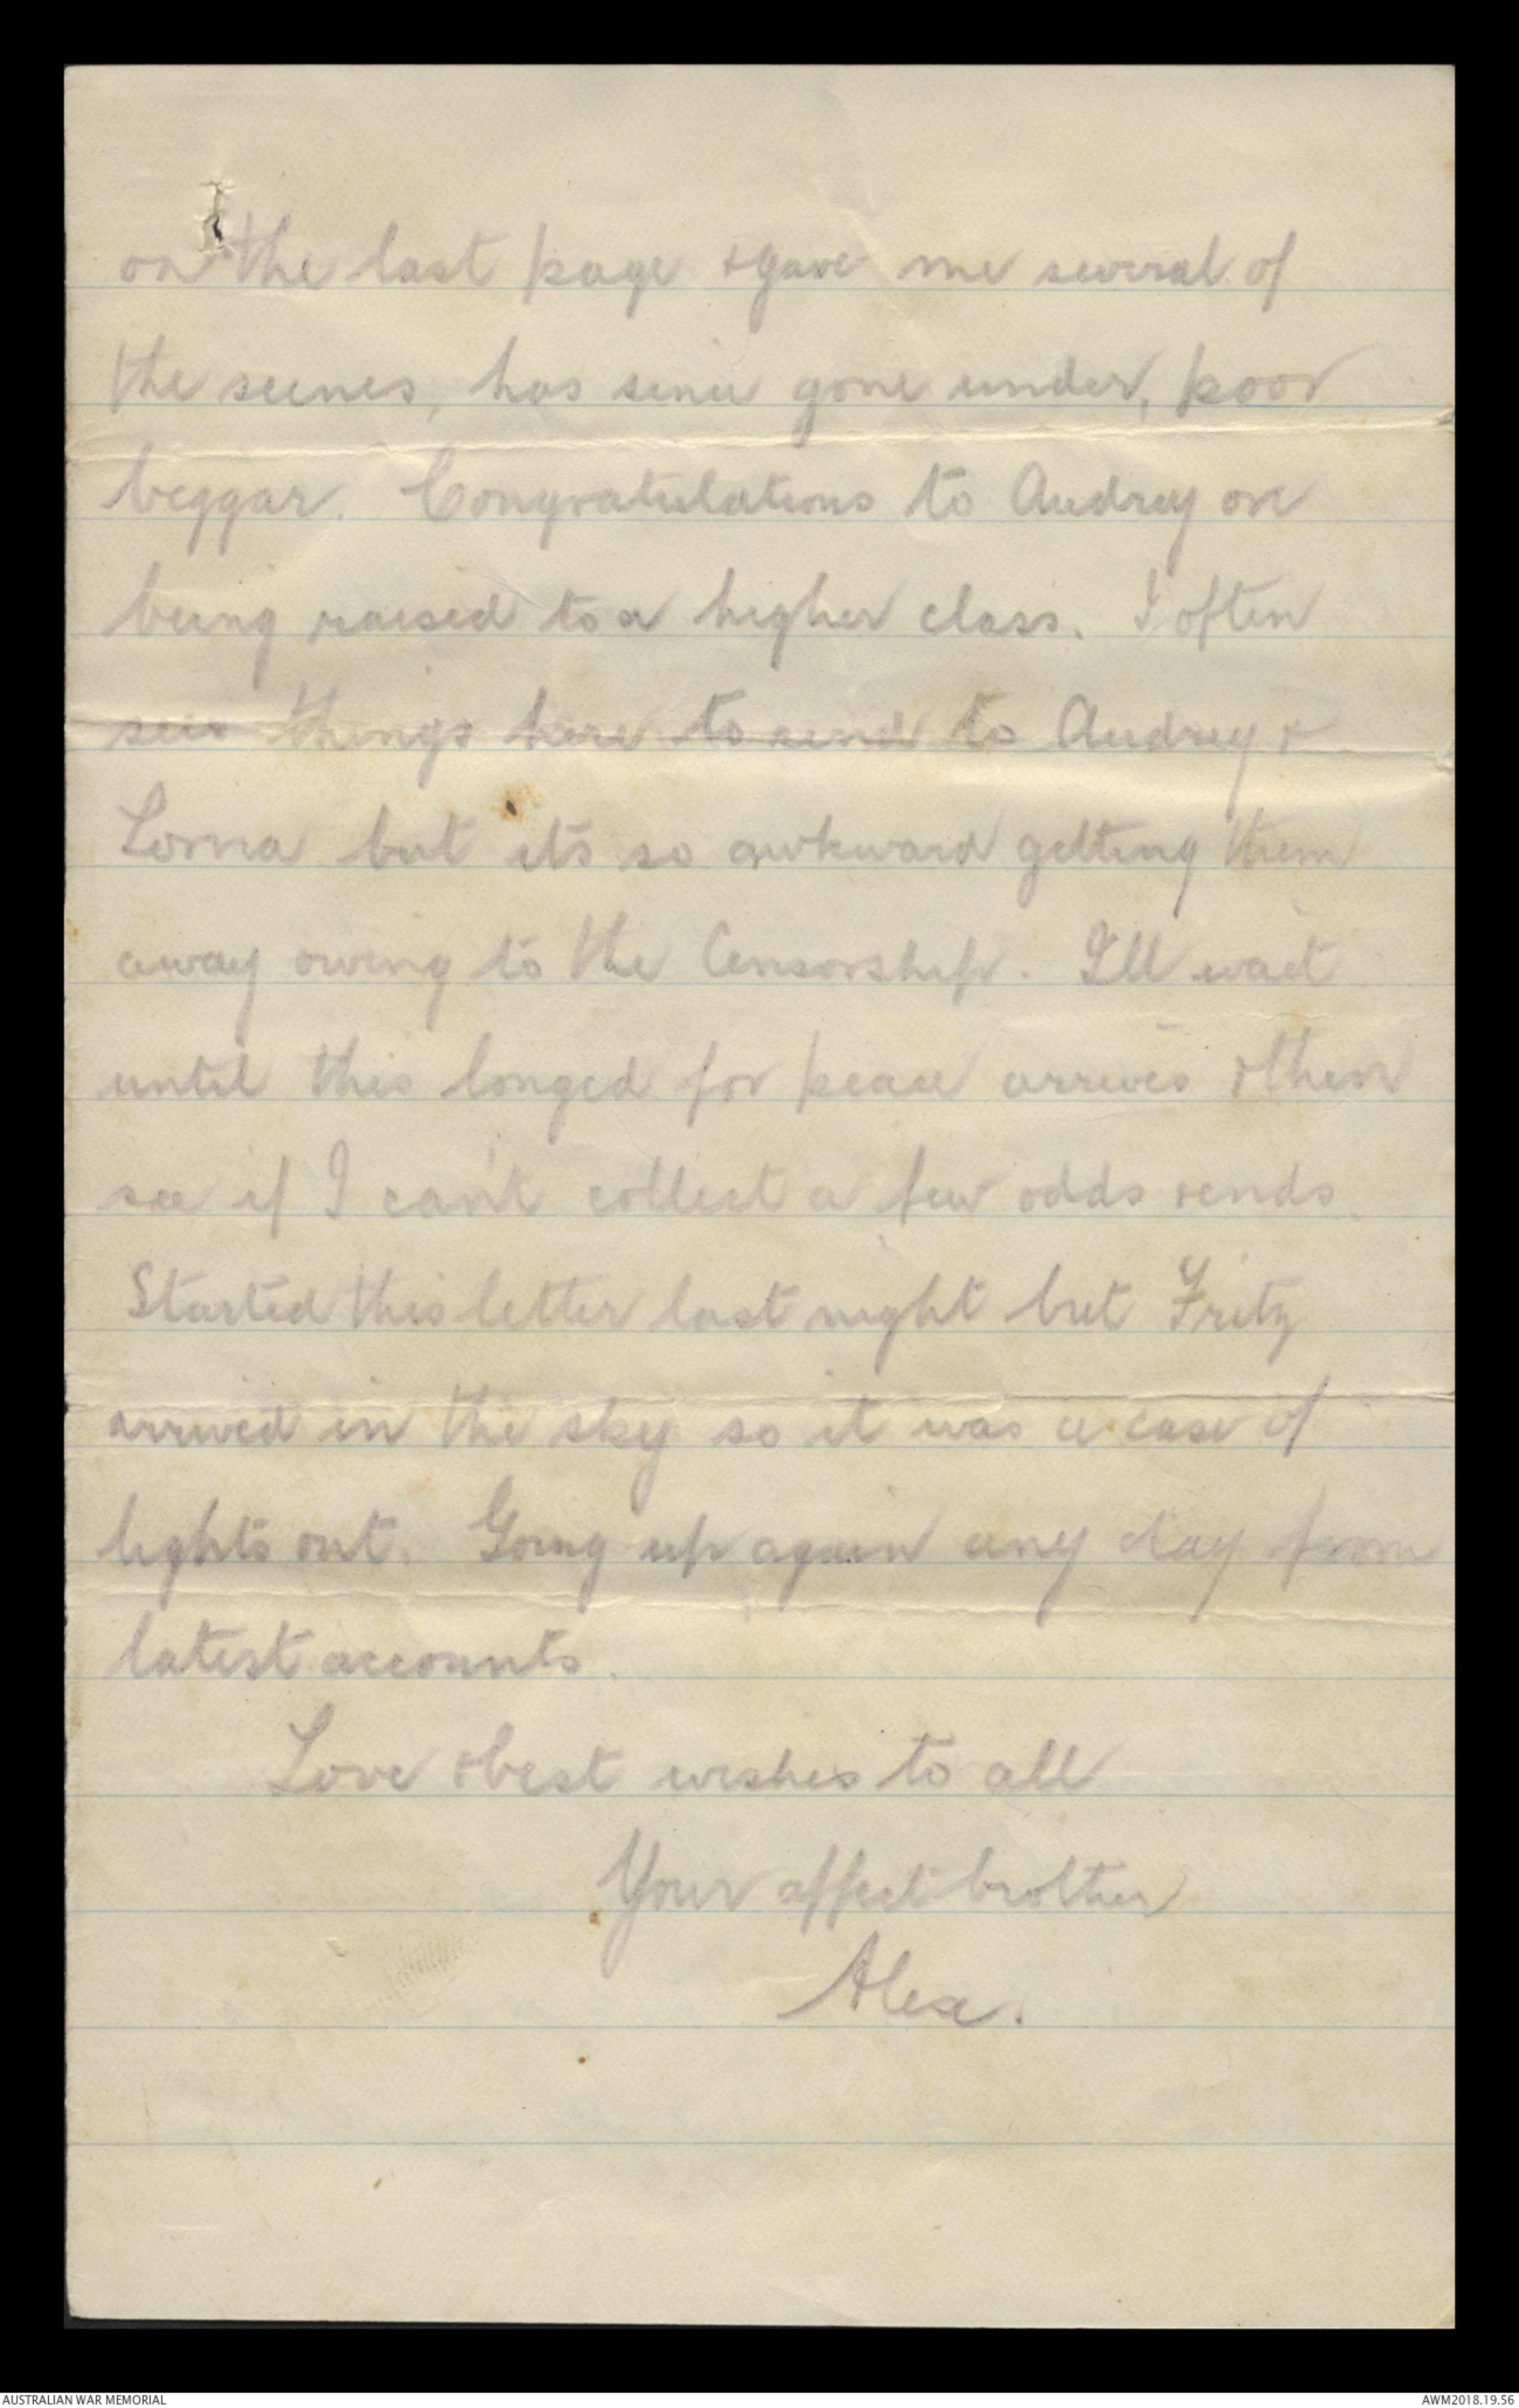 on the last page & gave me several of
the scenes, has since gone under, poor
beggar. Congratulations to Audrey on
being raised to a higher class. I often
see things here to send to Audrey &
Lorna but its so awkward getting them
away owing to the Censorship. I'll wait
until this longed for peace arrives & then
see if I can't collect a few odds & ends.
Started this letter last night but Fritz
arrived in the sky so it was a case of
lights out. Going up again any day from
latest accounts.
Love & best wishes to all
Your affect brother
Alex.
AUSTRALIAN WAR MEMORIAL
AWM2018.19.56